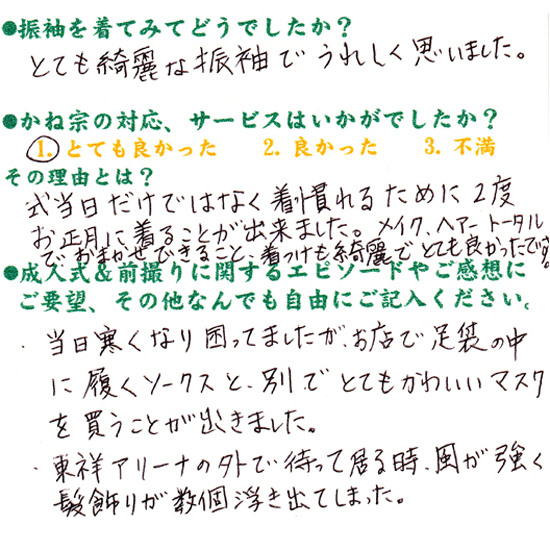 ●振袖を着てみてどうでしたか？
とても綺麗な振袖でうれしく思いました。
●かね宗の対応、サービスはいかがでしたか？
1. とても良かった　2. 良かった　3. 不満
その理由とは？
式当日だけではなく着慣れるために2度
お正月に着ることが出来ました。メイク、ヘアートータル
でおまかせできること、着つけも綺麗でとても良かったです。
●成人式&前撮りに関するエピソードやご感想に
ご要望、その他なんでも自由にご記入ください。
・当日寒くなり困ってましたが、お店で足袋の中
に履くソークスと、別でとてもかわいいマスク
を買うことが出きました。
・東祥アリーナの外で待って居る時、風が強く
髪飾りが数個浮き出てしまった。